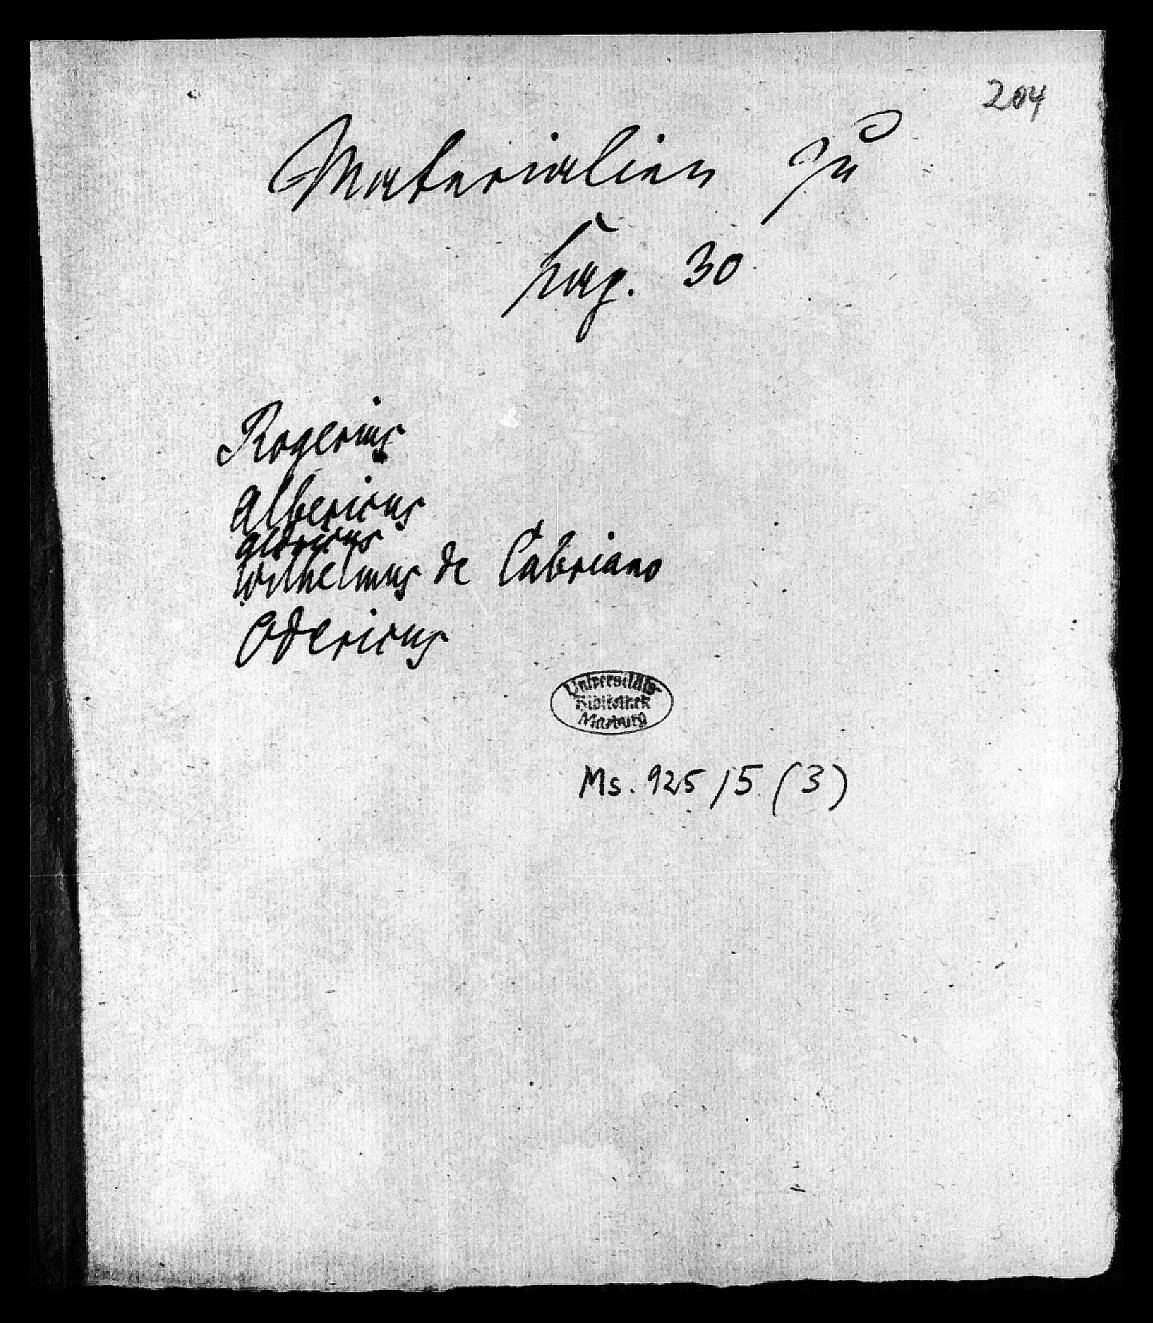 204
Materialien zu
Kap. 30
Rogerius
Albericus
Aldricus
Wilhelmus de Cabriano
Odericus
Universitäts-
Bibliothek
Marburg
Ms. 925/5 (3)